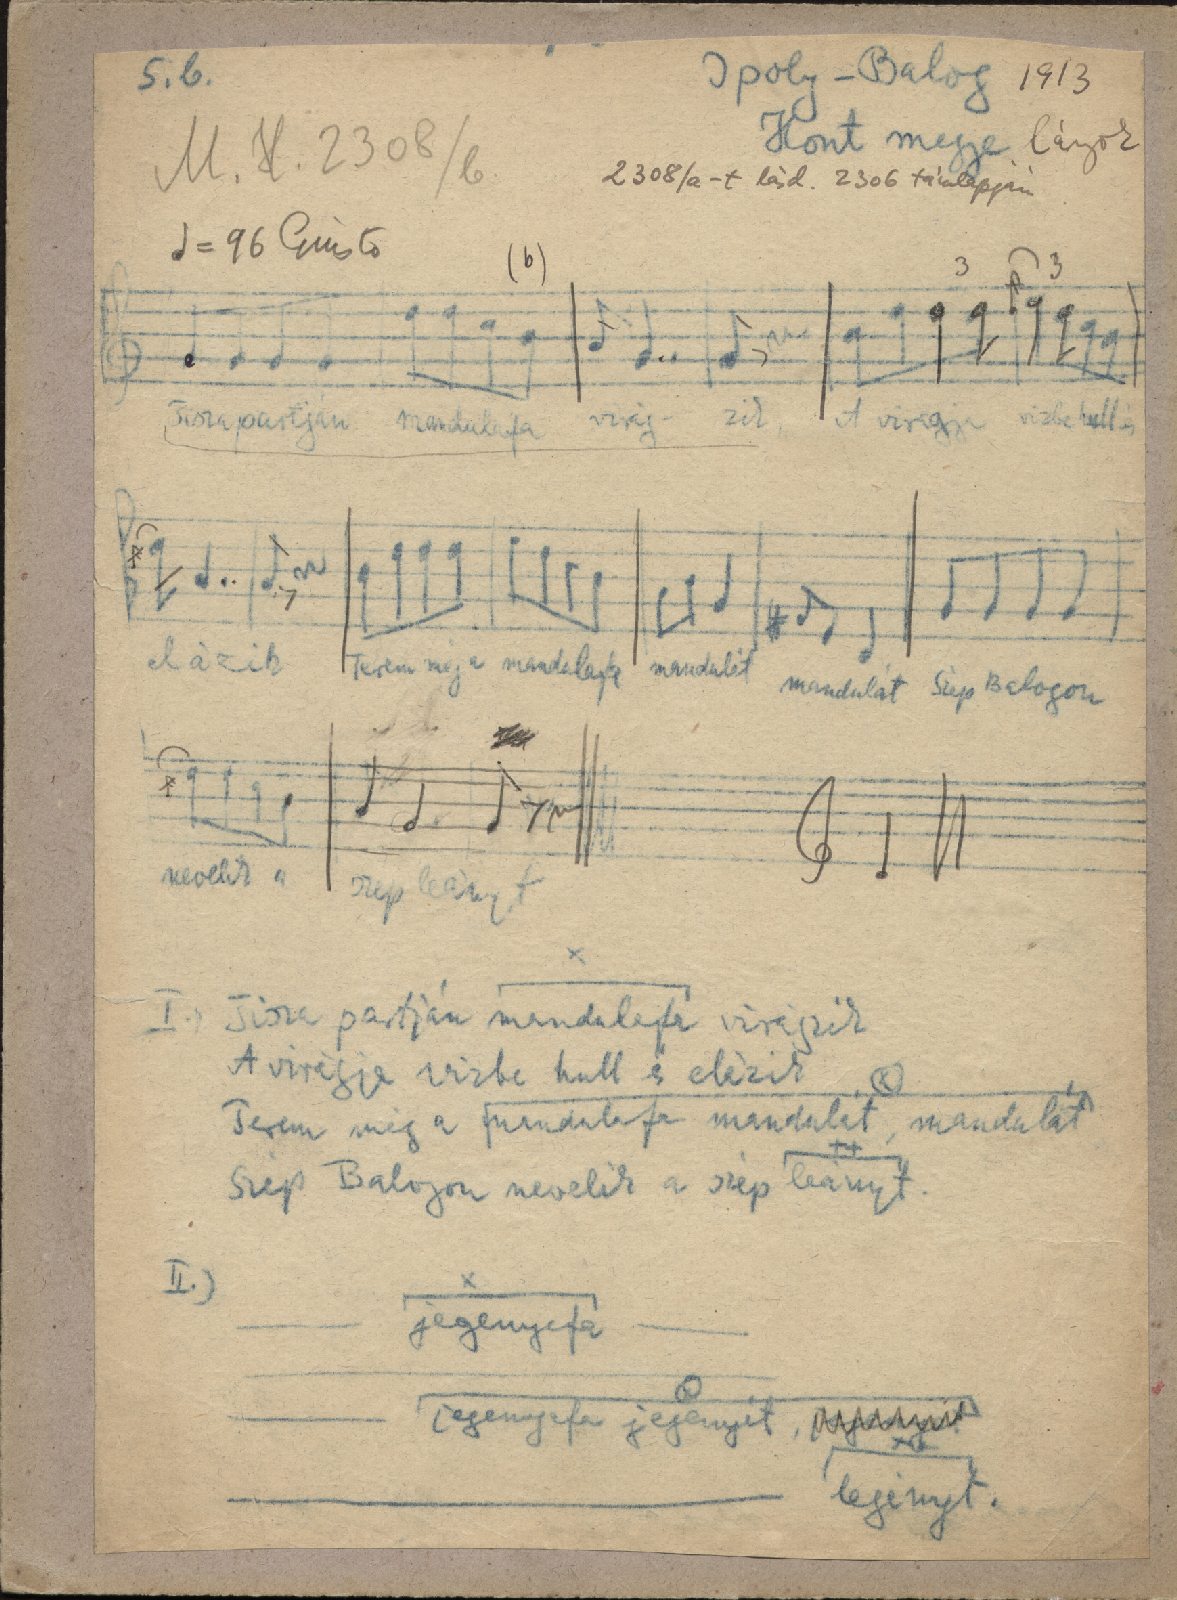 5.b.
Ipoly-Balog 1913
Hont megye lányok
M.H. 2308/b
2308/a-t lásd. 2306 támlapján
♩=96 Giusto
(b)
3 3
Tisza partján mandulafa virág-zik, A virágja vizbe hull és
elázik Terem még a mandulafa mandulát mandulát Szép Balogon
nevelik a szép leányt
x
I.) Tisza partján mandulafa virágzik
A virágja vizbe hull és elázik
Terem még a mandulafa mandulát, mandulát
++
Szép Balogon nevelik a szép leányt.
II.)
x
jegenyefa
jegenyefa jegenyét,
legényt.